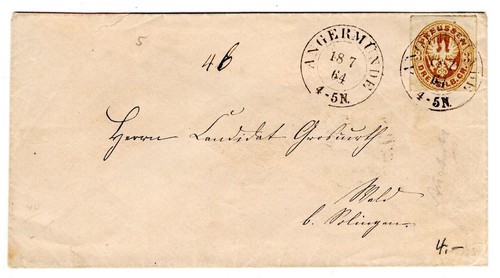 5
46
ANGERMÜNDE
18 7
64
4-5N.
PREUSSEN
4-5N.
Herrn Candidat Grosiurth
Wald
b. Solingen
4.-